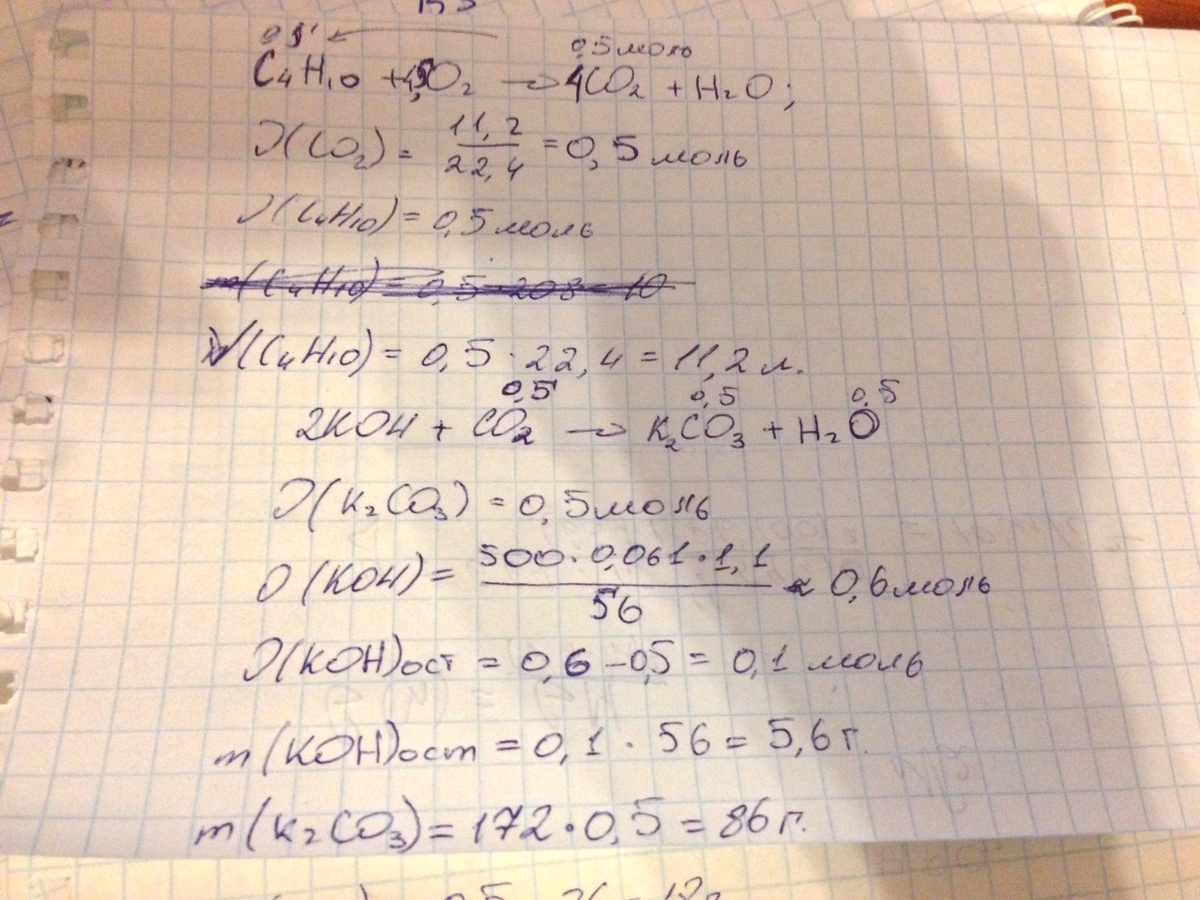 0,5 0,5 моль
C₄H₁₀ + 4,5O₂ → 4CO₂ + H₂O;
ν(CO₂) = 11,2 / 22,4 = 0,5 моль
ν(C₄H₁₀) = 0,5 моль
m(C₄H₁₀) = 0,5 · 208 = 10
V(C₄H₁₀) = 0,5 · 22,4 = 11,2 л.
0,5 0,5 0,5
2KOH + CO₂ → K₂CO₃ + H₂O
ν(K₂CO₃) = 0,5 моль
ν(KOH) = 500·0,061·1,1 / 56 ≈ 0,6 моль
ν(KOH)ост = 0,6 – 0,5 = 0,1 моль
m(KOH)ост = 0,1 · 56 = 5,6 г.
m(K₂CO₃) = 172·0,5 = 86 г.